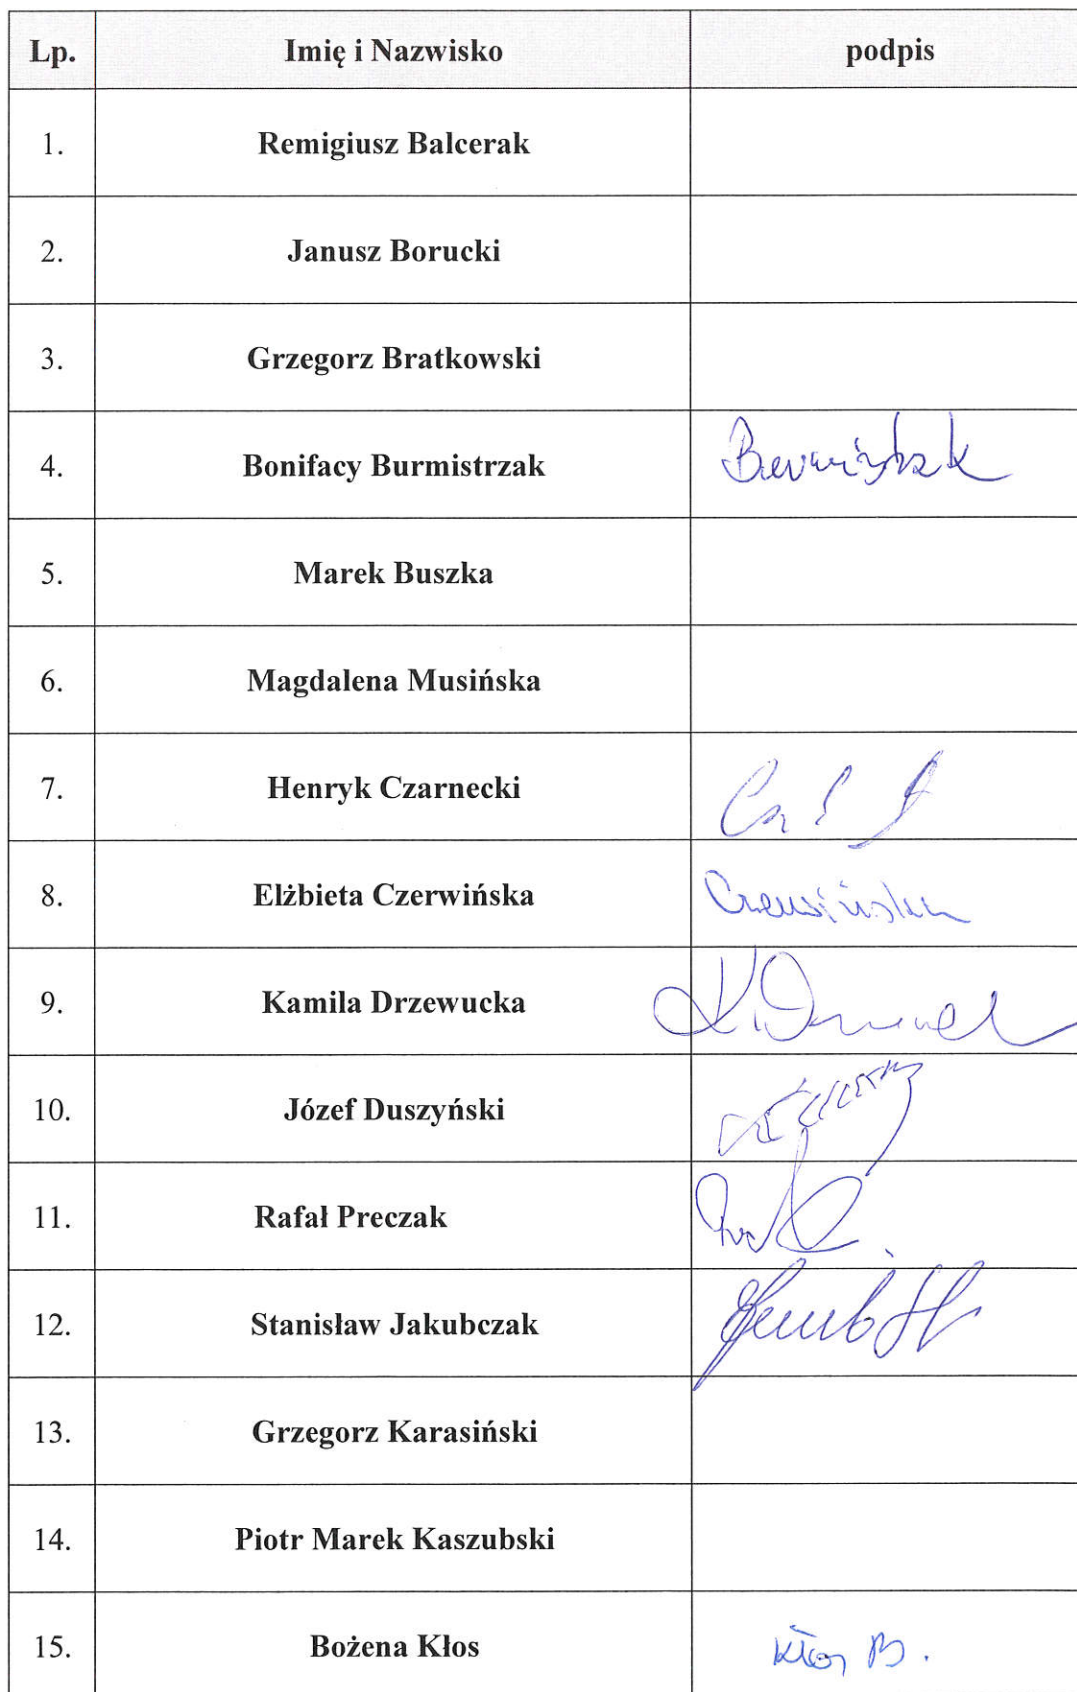 Lp. Imię i Nazwisko podpis
1. Remigiusz Balcerak
2. Janusz Borucki
3. Grzegorz Bratkowski
4. Bonifacy Burmistrzak
5. Marek Buszka
6. Magdalena Musińska
7. Henryk Czarnecki
8. Elżbieta Czerwińska Czerwińska
9. Kamila Drzewucka
10. Józef Duszyński
11. Rafał Preczak
12. Stanisław Jakubczak
13. Grzegorz Karasiński
14. Piotr Marek Kaszubski
15. Bożena Kłos Kłos B.